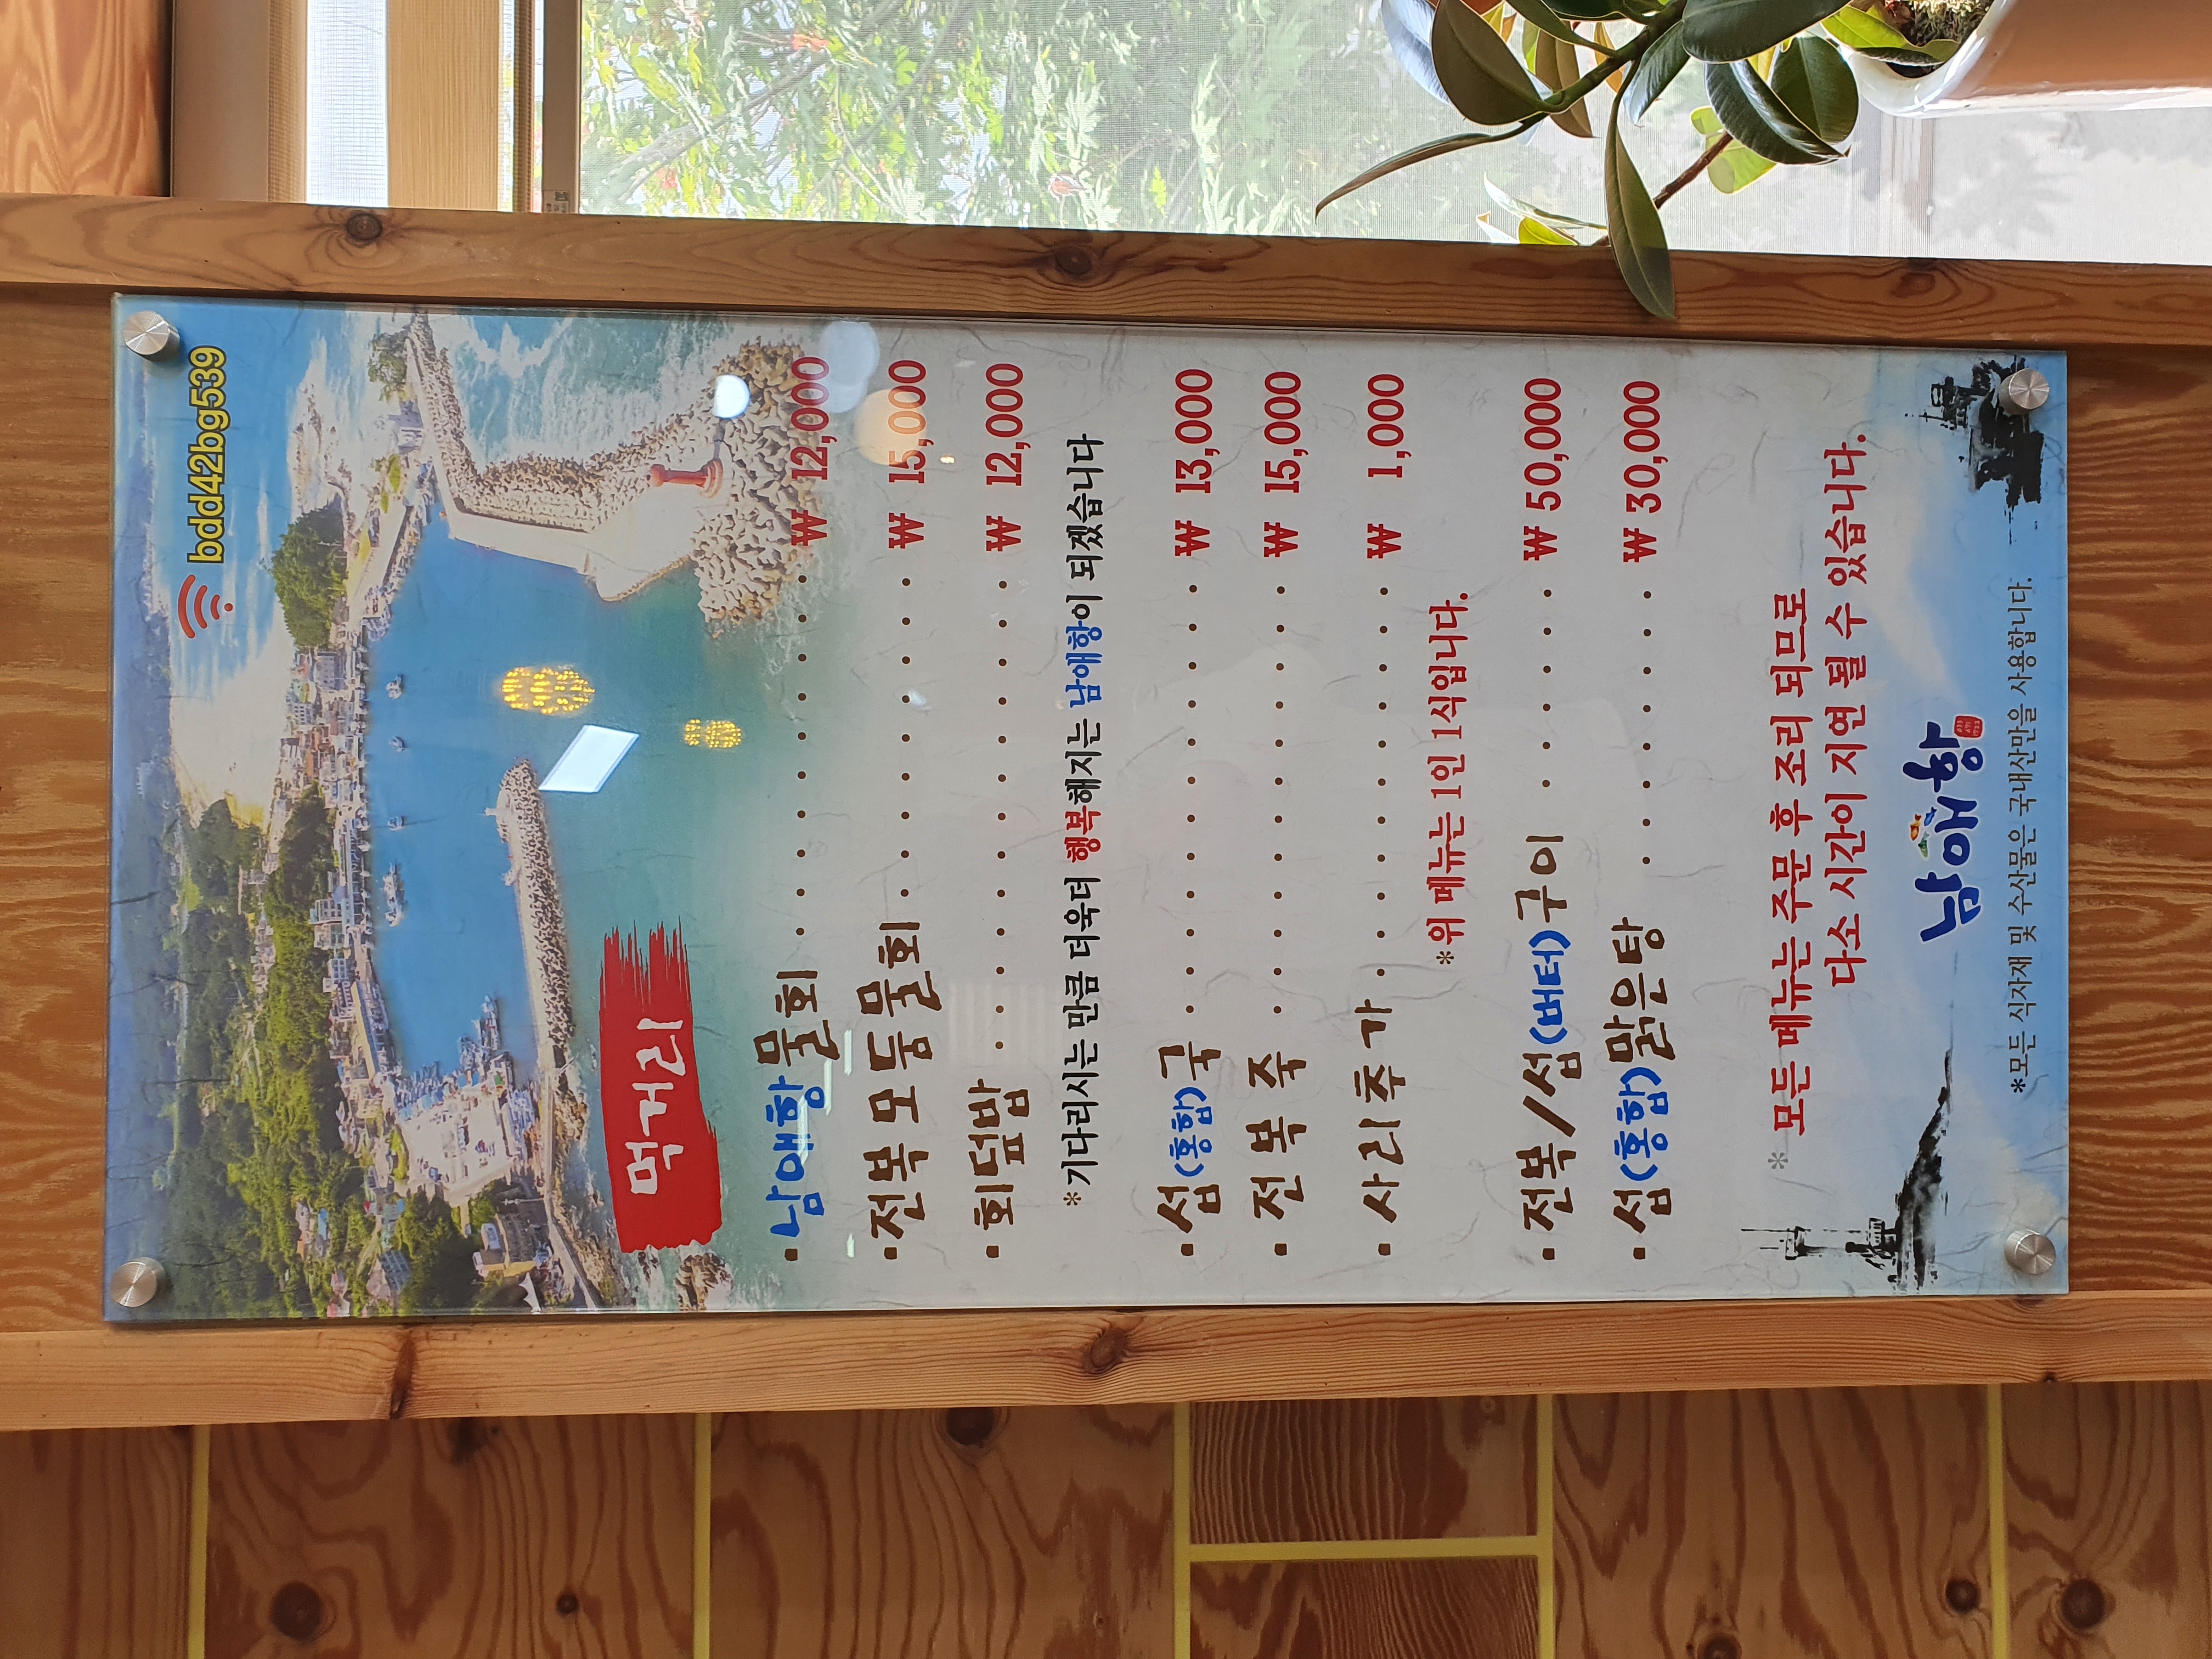 bdd42bg539
먹거리
· 남애항물회 ············ ₩ 12,000
· 전복모듬물회 ·········· ₩ 15,000
· 회덮밥 ·············· ₩ 12,000
*기다리시는 만큼 더욱더 행복해지는 남애항이 되겠습니다
· 섭(홍합)국 ············· ₩ 13,000
· 전복죽 ·············· ₩ 15,000
· 사리추가 ············· ₩ 1,000
*위 메뉴는 1인 1식입니다.
· 전복/섭(버터)구이 ······ ₩ 50,000
· 섭(홍합)맑은탕 ········· ₩ 30,000
* 모든 메뉴는 주문 후 조리 되므로
다소 시간이 지연 될 수 있습니다.
남애항
*모든 식자재 및 수산물은 국내산만을 사용합니다.